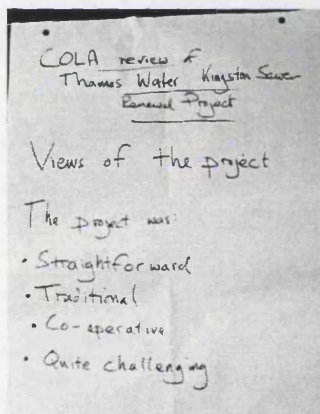 COLA review of
Thames Water Kingston Sewer
Renewal Project
Views of the project
The project was:
• Straightforward
• Traditional
• Co-operative
• Quite challenging